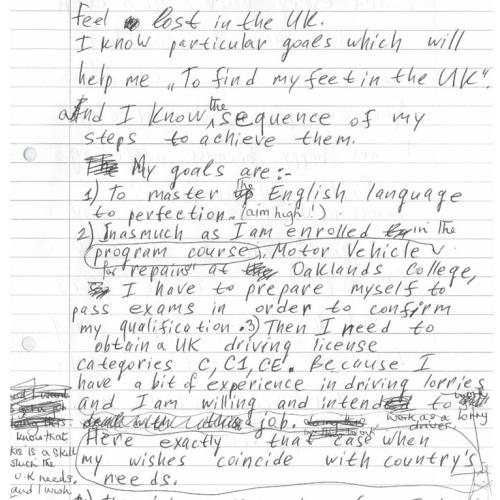 feel lost in the UK.
I know particular goals which will
help me „To find my feet in the UK".
And I know the sequence of my
steps to achieve them.
My goals are:-
1) To master the English language
to perfection. (aim high!).
2) Inasmuch as I am enrolled in the
program course, Motor Vehicle
for repairs" at Oaklands College,
I have to prepare myself to
pass exams in order to confirm
my qualification. 3) Then I need to
obtain a UK driving license
categories C, C1, CE. Because I
have a bit of experience in driving lorries
and I am willing and intend to
work as a lorry
driver.
job.
Here exactly that case when
my wishes coincide with country's
needs.
know that
is a skill
such the
U.K needs,
and I wish